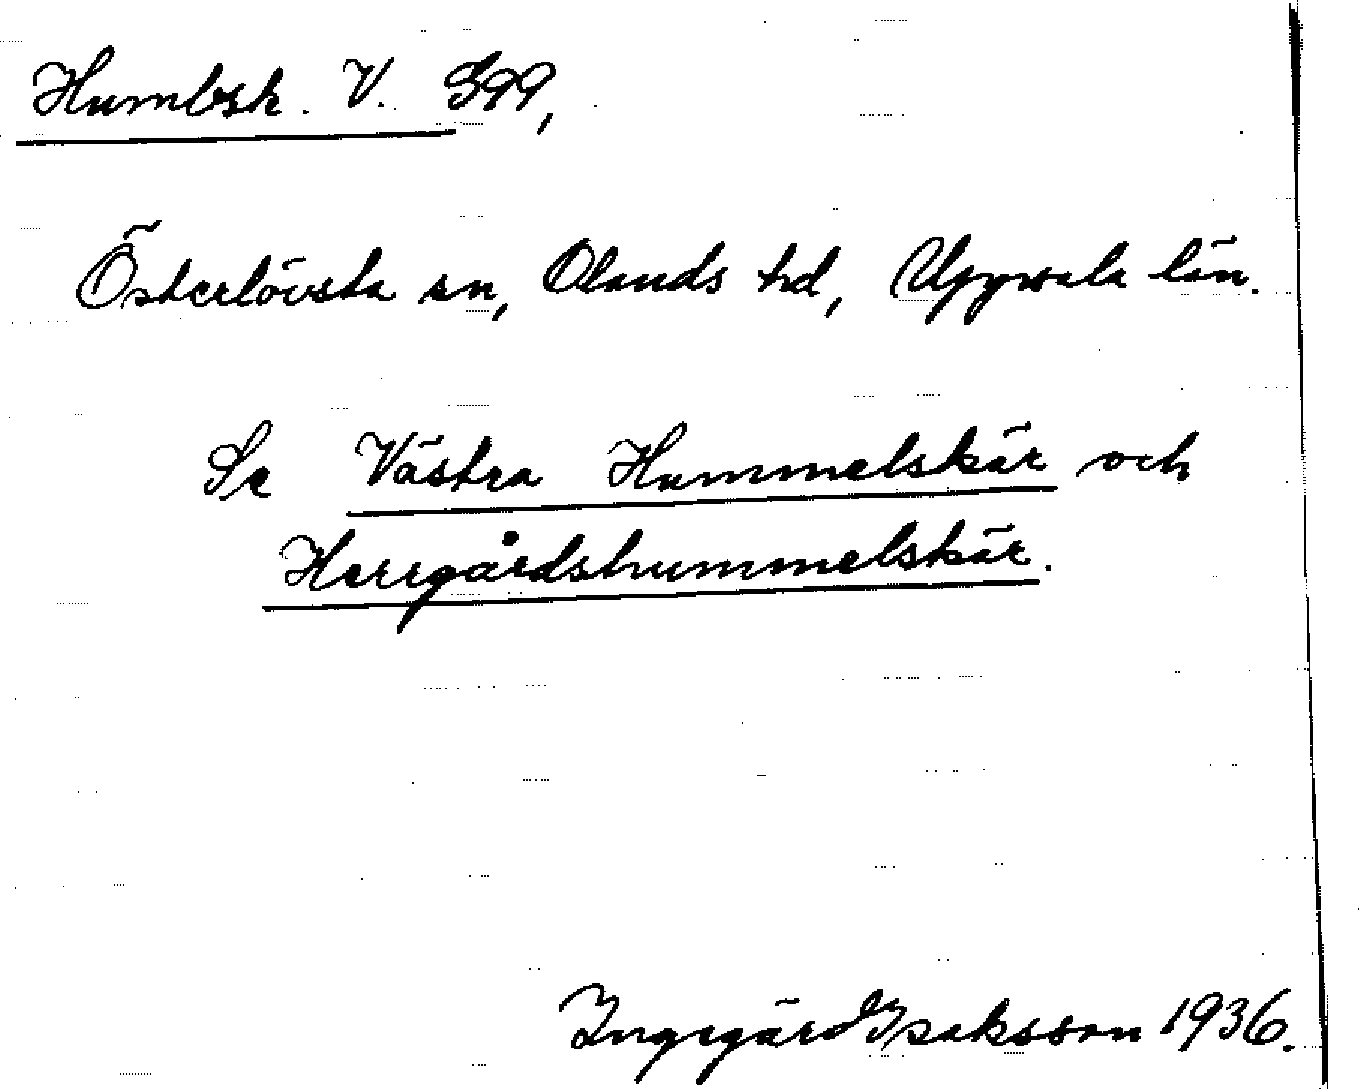 Humblsk. V. S99,
Österlövsta sn, Olands hd, Uppsala län.
Se Västra Hummelskär och
Herrgårdshummelskär.
Ingegärd Isaksson 1936.